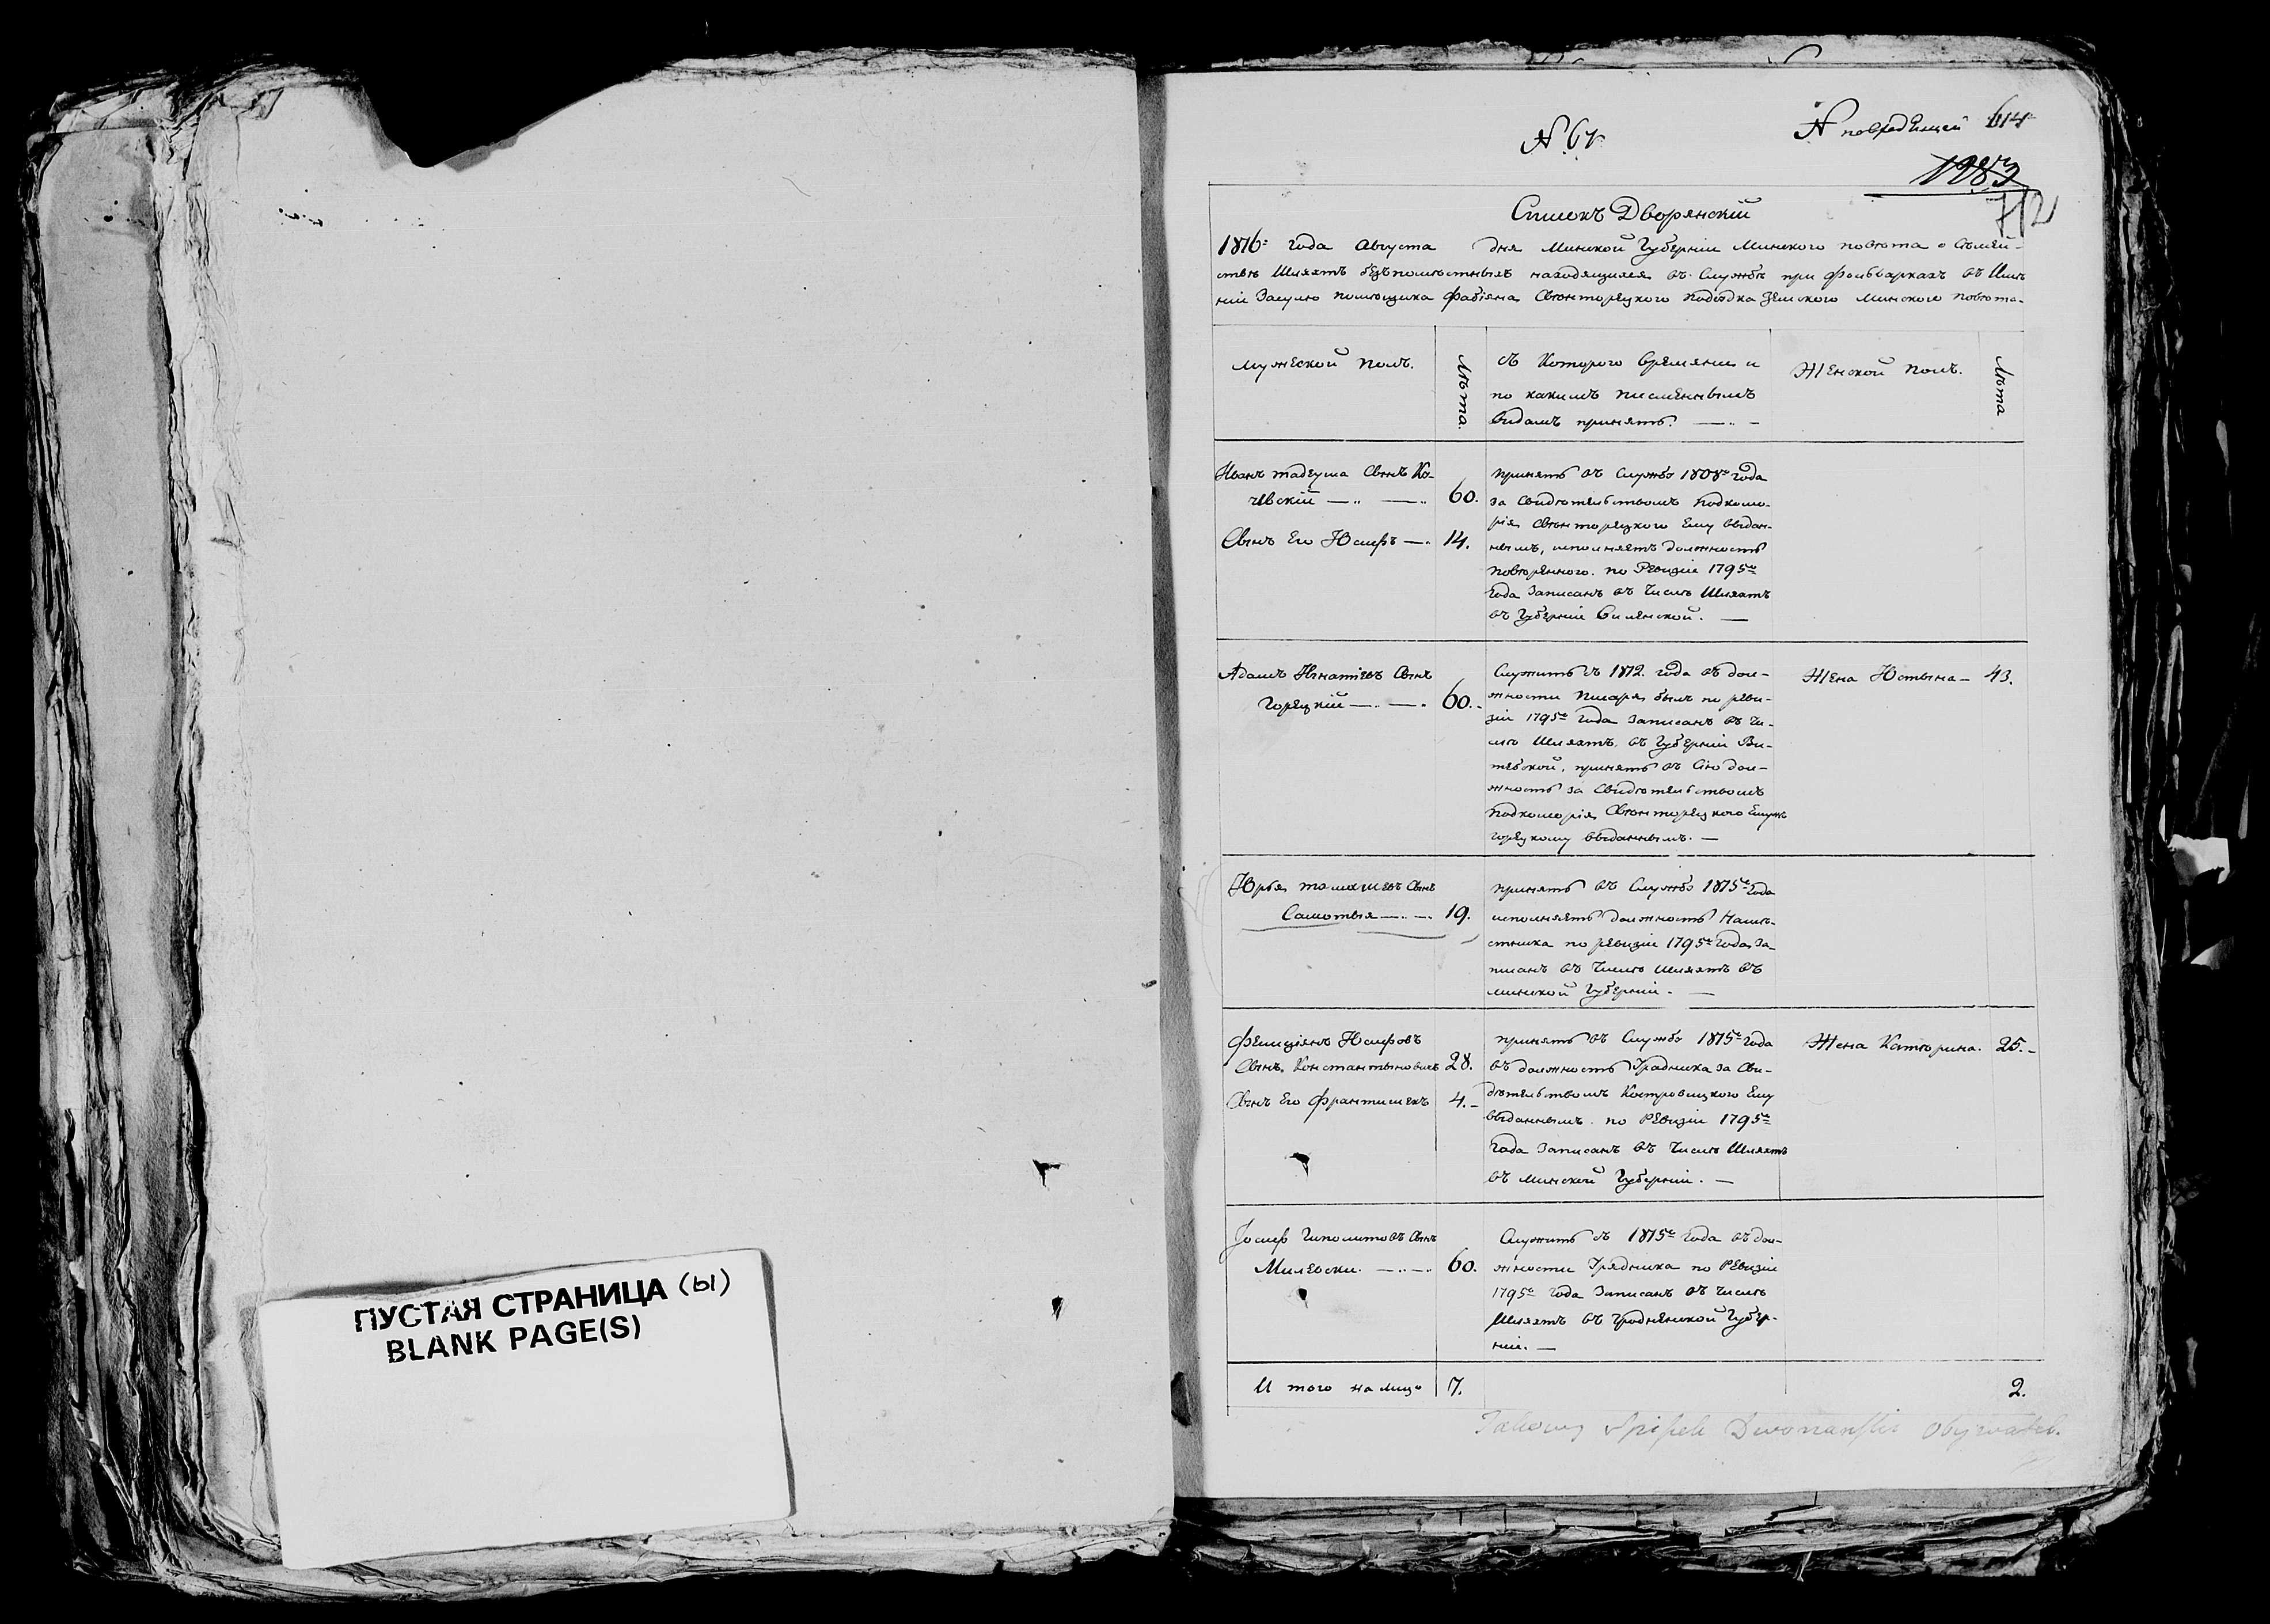 ПУСТАЯ СТРАНИЦА (ы)
BLANK PAGE(S)
№ 61
№ повредящей 614
1983
712
Списокъ Дворянскій
1816: года Августа дня Минской Губерніи Минского повѣта о Сѣмей-
ствѣ Шляхтъ безъпомѣстныхъ находящихся въ Службѣ при фольваркахъ въ Имѣ
ніи Засулю помѣщика Фабіяна Свѣнторецкого Подсудка Земского Минского повѣта.
мужеской полъ.
Лѣта.
съ Которого времяни и
по какимъ писменнымъ
видамъ принятъ.
Женской полъ.
Лѣта
Иванъ тадеуша Сынъ Ко-
чевскій
60.
принятъ въ Службу 1808го года
за Свидѣтельствомъ Подкомо-
рія Свѣнторецкого Ему выдан-
нымъ, исполняетъ должность
Сынъ Его Юсифъ — 14.
повѣренного. по Ревизіи 1795го
года Записанъ въ Числѣ Шляхтъ
въ Губерніи Виленской. —
Адамъ Игнатіевъ Сынъ
Горецкій
60.
Служитъ съ 1812. года въ дол-
жности Писаря былъ по реви-
зіи 1795го года записанъ въ Чи-
слѣ Шляхтъ въ Губерніи Ви-
тебской, принятъ въ Сію дол-
жность за Свидѣтельствомъ
Подкоморія Свѣнторецкого Емужъ
горецкому выданнымъ. —
Жена Юстына — 43.
Юрья томашевъ Сынъ
Самотыя
19.
принятъ въ Службу 1815го года
исполняетъ должность Намѣ-
стника по ревизіи 1795го года За
писанъ въ Числѣ Шляхтъ въ
минской Губерніи. —
Фелиціянъ Юсифовъ
Сынъ Константыновичъ 28.
Сынъ Его Франтишекъ 4.
принятъ въ Службу 1815го года
въ должность Урадника за Сви-
дѣтельствомъ Костровицкого Ему
выданнымъ. по Ревизіи 1795го
года Записанъ въ Числѣ Шляхтъ
въ минской Губерніи. —
Жена Катерина. 25.
Іосиф Гиполитовъ Сынъ
Милевски.
60.
Служитъ съ 1815го года въ дол-
жности Урядника по Ревизіи
1795го года Записанъ въ Числѣ
Шляхтъ въ гродненской Губер-
ніи. —
И того на лицо 7.
2.
Takowy Spisek Dworianski Obywatel.